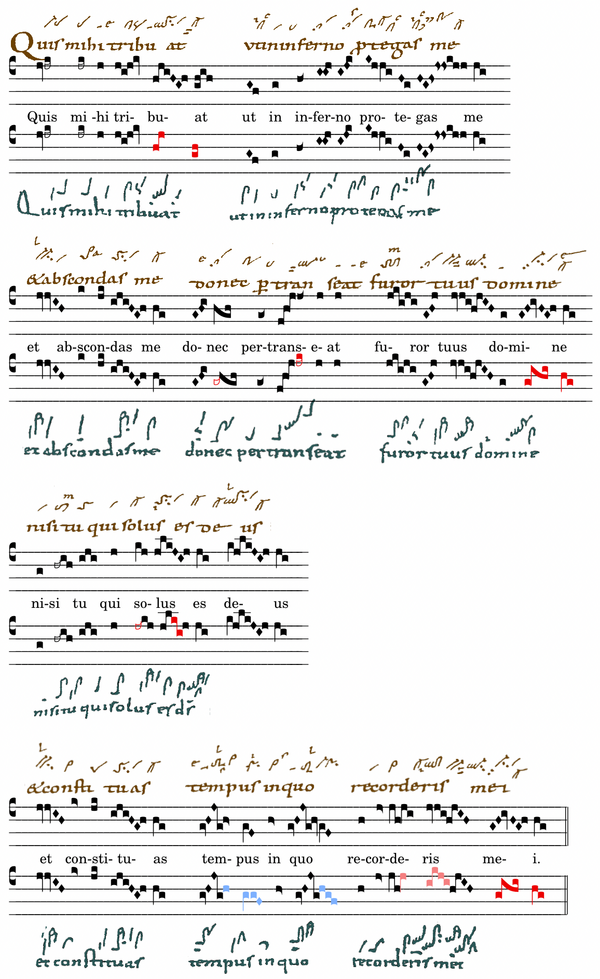 Quis mihi tribu at utin inferno ptegas me
Quis mi -hi tri- bu- at ut in in-fer-no pro- te- gas me
Quis mihi tribuat ut in inferno protegas me
&abscondas me donec ptran seat furor tuus domine
et ab-scon-das me do- nec per-trans- e- at fu- ror tuus do-mi- ne
et abscondasme donec pertranseat furor tuus domine
nisi tu qui solus es de us
ni-si tu qui so- lus es de- us
nisi tu qui solus es ds
&consti tuas tempus inquo recorderis mei
et con-sti- tu- as tem- pus in quo re-cor-de- ris me- i.
et constituas tempus in quo recorderis mei